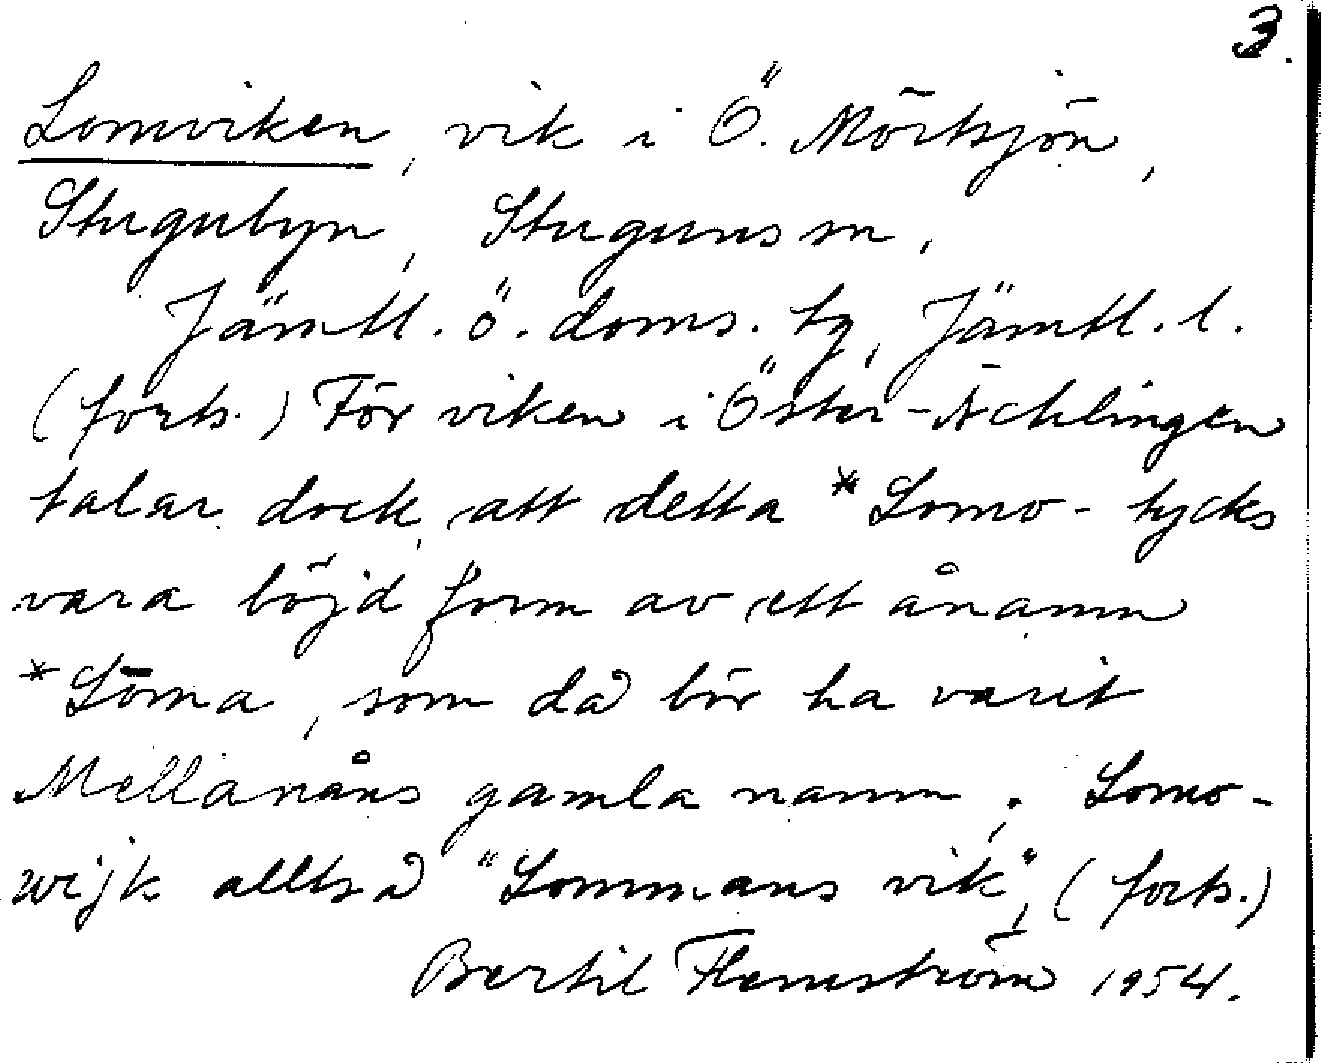 3.
Lomviken, vik i Ö. Mörtsjön,
Stugubyn, Stuguns sn,
Jämtl. ö. doms. tg, Jämtl. l.
(forts.) För viken i Öster-Åcklingen
talar dock, att detta *Lomo- tycks
vara böjd form av ett ånamn
*Lōma, som då bör ha varit
Mellanåns gamla namn; Lomo-
wijk alltså "Lommans vik", (forts.)
Bertil Flemström 1954.